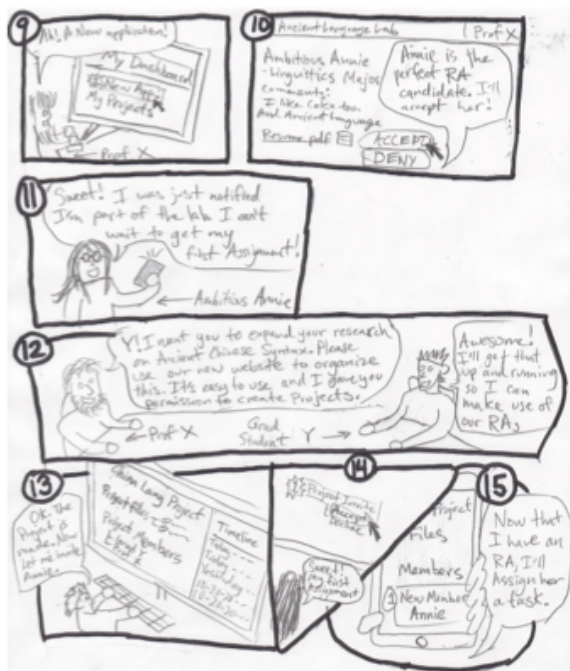 9
Ah! A New application!
My Dashboard
New App
My Projects
← Prof X
10
Ancient Language Lab
Prof X
Ambitious Annie
- Linguistics Major
comments:
I like Coke too.
And Ancient language
Resume.pdf
ACCEPT
DENY
Annie is the
perfect RA
candidate. I'll
accept her!
11
Sweet! I was just notified
I'm part of the lab. I can't
wait to get my
first Assignment!
← Ambitious Annie
12
Y! I want you to expand your research
on Ancient Chinese Syntax. Please
use our new website to organize
this. It's easy to use and I gave you
permission to create Projects.
← Prof X
Grad
Student Y →
Awesome!
I'll get that
up and running
so I can
make use of
our RA.
13
OK. The
Project is
made. Now
let me invite
Annie.
Lang Project
Project Files
Project Members
Timeline
Today
Today
Yesterday
14
Project Invite
Accept
Decline
Sweet!
My first
Assignment
15
Project
Files
Members
New Member
Annie
Now that
I have an
RA, I'll
Assign her
a task.